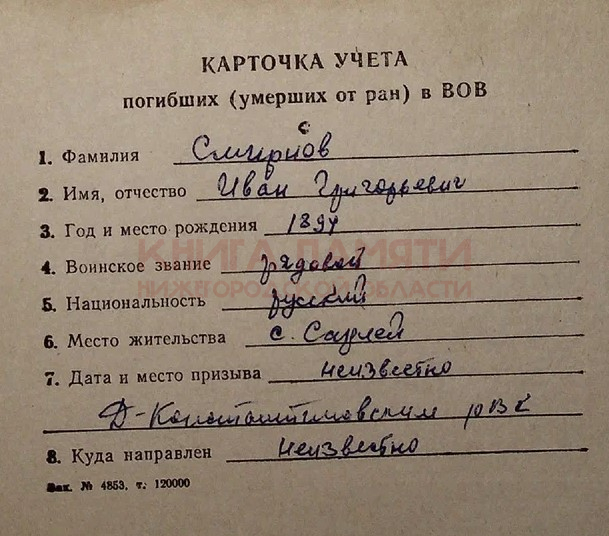 КАРТОЧКА УЧЕТА
погибших (умерших от ран) в ВОВ
С
1. Фамилия Смирнов
2. Имя, отчество Иван Григорьевич
3. Год и место рождения 1897
КНИГА ПАМЯТИ
4. Воинское звание рядовой
НИЖЕГОРОДСКОЙ ОБЛАСТИ
5. Национальность русский
6. Место жительства с.
7. Дата и место призыва неизвестно
Д-Константиновским РВК
8. Куда направлен неизвестно
Зак. № 4853, т. 120000